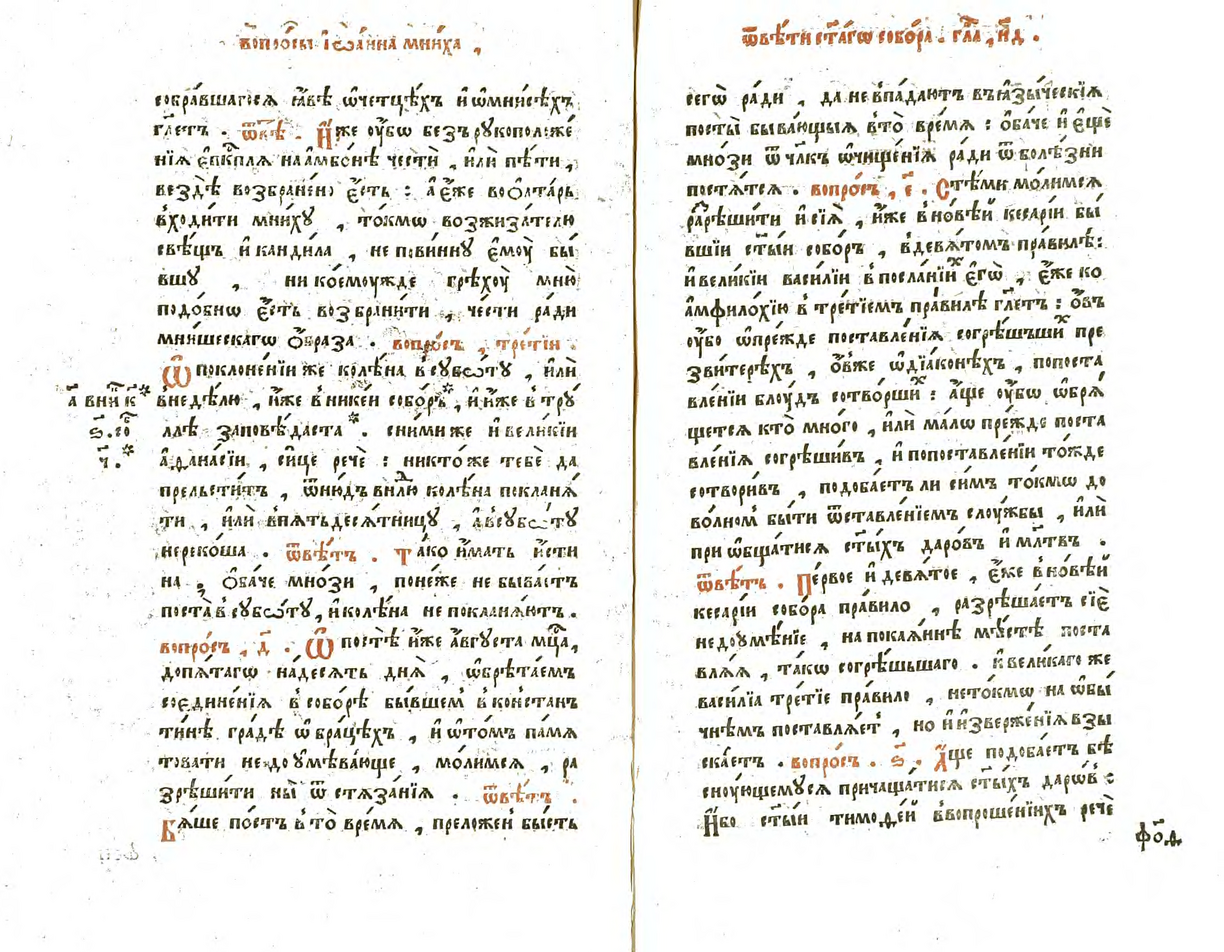 вопро́сы і҆ѡа́нна мни́ха ,
собра́вшагося гла́вѣ ѡ҆четцѣ́хъ и҆ ѡ҆мнисѣ́хъ
гл҃етъ . ѿвѣ́ . И҆́же ᲂу҆́бѡ без̾рукоположе́
нїѧ є҆пⷭ҇кплѧ на амбо́нѣ честѝ , и҆лѝ пѣ́ти ,
вездѣ̀ возбране́но є҆́сть : а҆є҆́же воѻ҆лта́рь
входи́ти мни́хꙋ , то́кмѡ возжиза́телю
свѣ́щъ и҆ канди́ла , не пови́ннꙋ є҆мꙋ̀ бы́
вшꙋ , ни кое́моуже грѣхꙋ̀ мню̀
подо́бнѡ є҆́сть возбрани́ти , че́сти ра́ди
мни́шескагѡ ѻ҆́браза . вопро́съ , тре́тїи .
Ѡ҆ поклоне́нїи же колѣ́на в̾сꙋббѡ́тꙋ , и҆лѝ
в̾недѣ́лю , и҆́же в̾нике́и собо́ръ* , и҆ и҆́же в̾трꙋ́
а҃ внⷤи к*
ллѣ заповѣ́даста* . сни́ми же и҆ вели́кїи
ѕ҃.го
а҆ѳана́сїи , си́це речѐ : никто́же тебѐ да
ч҃.*
прельсти́тъ , ѿню́дъ в̾нⷣлю колѣ́на поклана́
ти , и҆лѝ в̾пѧтьдесѧ́тницꙋ , а҆в̾сꙋббѡ́тꙋ
нереко́ша . ѿвѣ́тъ . Та́ко и҆́мать и҆́сти
на , ѻ҆ба́че мно́зи , поне́же не быва́етъ
поста̀ в̾сꙋббѡ́тꙋ , и҆ колѣ́на не покланѧ́ютъ .
вопро́съ , д҃ . Ѡ҆ по́стѣ и҆́же а҆́вгуста мцⷭ҇а ,
допѧ́тагѡ на́десѧть днѧ̀ , ѡ҆брѣта́емъ
соедине́нїѧ в̾собо́рѣ бы́вшем̾ в̾констан
ти́нѣ гра́дѣ ѡ҆ бра́цѣхъ , и҆ ѡ҆то́мъ памѧ
товати недоꙋмѣва́юще , мо́лимсѧ , ра
зрѣши́ти ны̀ ѿ стѧза́нїѧ . ѿвѣ́тъ .
Бѧ́ше по́стъ в̾то̀ вре́мѧ , преложе́н̾ бы́сть
ѿвѣ́ти ст҃а́гѡ собо́ра . гла҃ , н҃д .
сегѡ̀ ра́ди , да не в̾пада́ютъ в̾ꙗ҆зы́ческїѧ
посты̀ быва́ющыѧ в̾то̀ вре́мѧ : ѻ҆ба́че и҆ є҆щѐ
мно́зи ѿ чл҃къ ѡ҆чище́нїѧ ра́ди ѿ болѣ́зни
постѧ́тсѧ . вопро́съ , є҃ . Стѣ́мъ мо́лимсѧ
разрѣши́ти и҆ сїѧ̀ , и҆́же в̾но́вѣй кеса́рїи бы́
вшїи ст҃ы́и собо́ръ , в̾девѧ́томъ пра́вилѣ :
и҆ вели́кїи васи́лїи в̾посла́нїиⷯ є҆гѡ̀ , є҆́же ко
а҆мфило́хїю в̾ тре́тїемъ пра́вилѣ гл҃етъ : ѻ҆́въ
ᲂу҆́бо ѡ҆пре́жде поставле́нїѧ согрѣ́шьшиⷯ пре
зви́терѣхъ , ѻ҆́вже ѡ҆дїа́конѣхъ , попоста
вле́нїи блꙋ́дъ сотво́ршиⷯ : а҆́ще ᲂу҆́бо ѡ҆брѧ́
щетсѧ кто̀ мно́го , и҆лѝ ма́лѡ пре́жде поста
вле́нїѧ согрѣши́въ , и҆ попоставле́нїи то́жде
сотвори́въ , подоба́етъ ли си́мъ то́кмѡ до
во́лном̾ бы́ти ѿставле́нїемъ слꙋ́жбы , и҆лѝ
при ѡ҆бща́тисѧ ст҃ы́хъ даро́въ и҆ мл҃твъ .
ѿвѣ́тъ . Пе́рвое и҆ девѧ́тое , є҆́же в̾но́вѣй
кеса́рїи собо́ра пра́вило , разрѣша́етъ сїѐ
недоꙋмѣ́нїе , на покаѧ́ннѣ мѣ́стѣ поста
влѧ́ѧ , та́кѡ согрѣ́шьшаго . и҆ вели́каго же
васи́лїа тре́тїе пра́вило , нето́кмѡ на ѡ҆бы́
чнѣмъ поставлѧ́ет̾ , но и҆ и҆зверже́нїѧ взы
ска́етъ . вопро́съ . ѕ҃ . А҆́ще подоба́етъ бѣ
сною́щемꙋсѧ причаща́тисѧ ст҃ы́хъ даро́в̾ :
И҆́бо ст҃ы́и тимоѳе́й в̾вопроше́нїихъ речѐ
фо҃д.